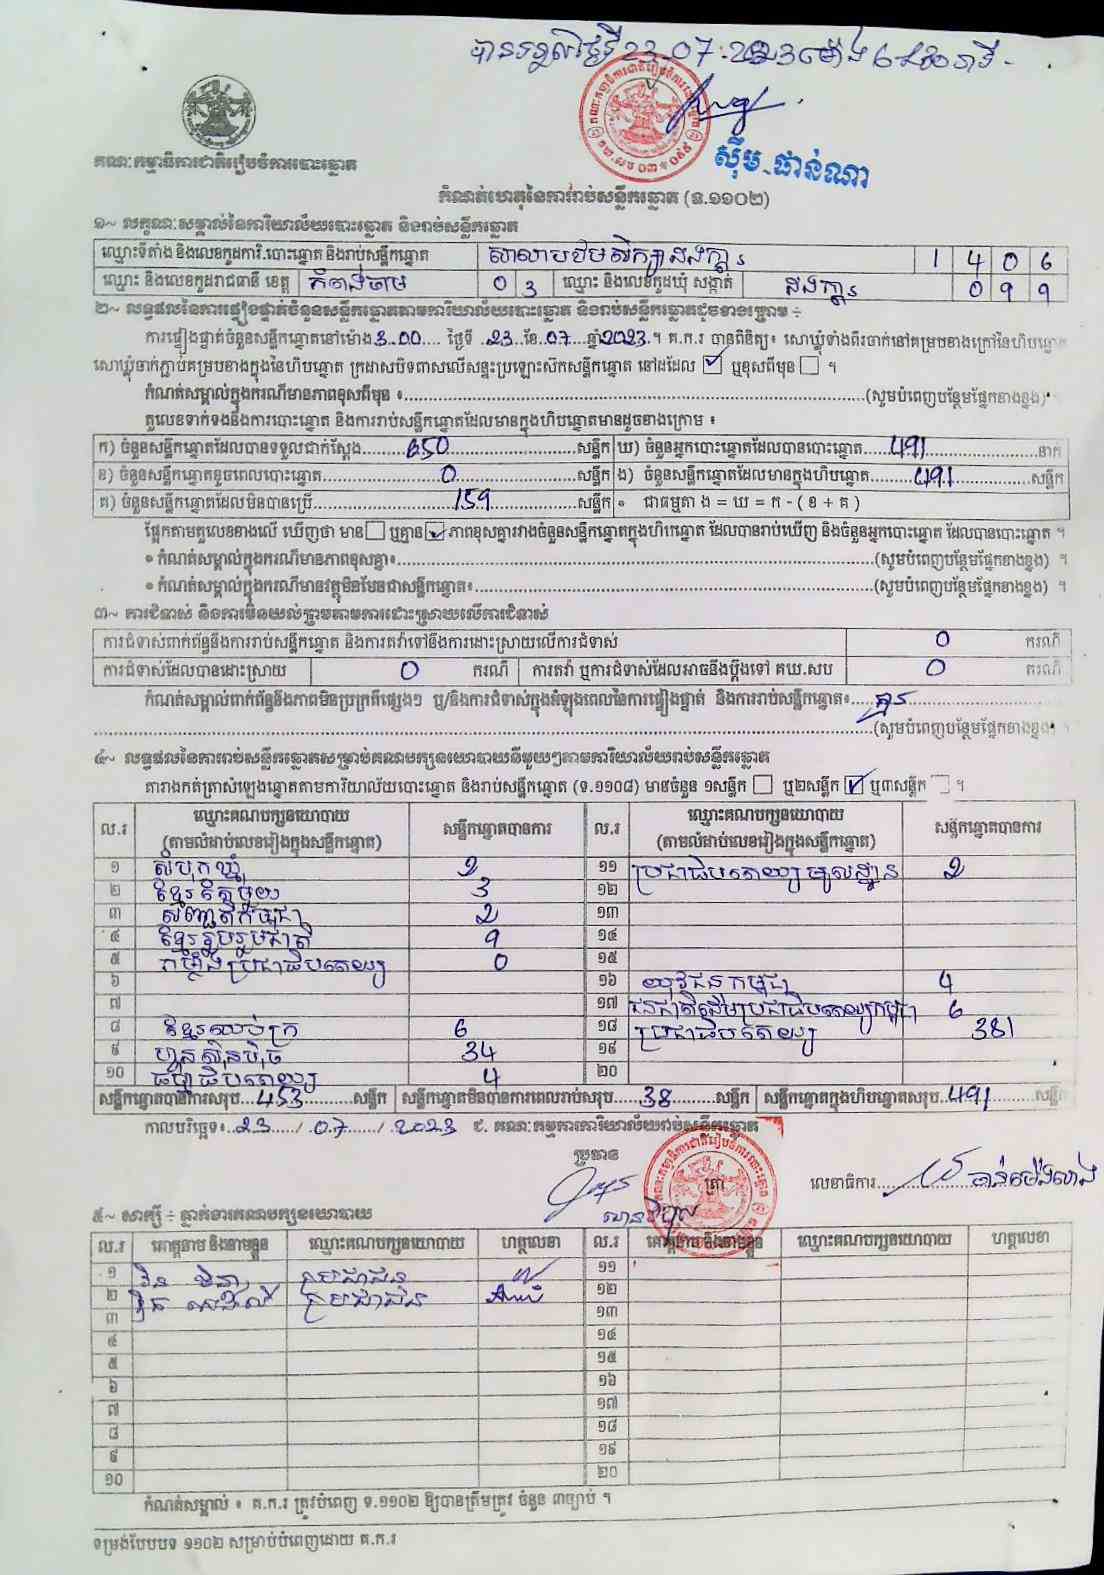 បានទទួលថ្ងៃទី 23.07.2023 ម៉ោង
ស៊ឹម ផាន់ណា
គណៈកម្មាធិការជាតិរៀបចំការបោះឆ្នោត
កំណត់ហេតុនៃការរាប់សន្លឹកឆ្នោត (ទ.១១០២)
១~ លក្ខណៈសម្គាល់នៃការិយាល័យបោះឆ្នោត និងរាប់សន្លឹកឆ្នោត
ឈ្មោះទីតាំង និងលេខកូដការិ.បោះឆ្នោត និងរាប់សន្លឹកឆ្នោត សាលាបឋមសិក្សា 1 4 0 6
ឈ្មោះ និងលេខកូដរាជធានី ខេត្ត កំពង់ចាម 0 3 ឈ្មោះ និងលេខកូដឃុំ សង្កាត់ 0 9 9
២~ លទ្ធផលនៃការផ្ទៀងផ្ទាត់ចំនួនសន្លឹកឆ្នោតតាមការិយាល័យបោះឆ្នោត និងរាប់សន្លឹកឆ្នោតដូចខាងក្រោម ÷
ការផ្ទៀងផ្ទាត់ចំនួនសន្លឹកឆ្នោតនៅម៉ោង 3.00 ថ្ងៃទី 23 ខែ 07 ឆ្នាំ 2023 ។ គ.ក.រ បានពិនិត្យ៖ សោឃ្លុំទាំងពីរចាក់នៅគម្របខាងក្រៅនៃហិបឆ្នោត
សោឃ្លុំចាក់ភ្ជាប់គម្របខាងក្នុងនៃហិបឆ្នោត ក្រដាសបិទពាសលើសន្ទះប្រឡោះស៊កសន្លឹកឆ្នោត នៅដដែល ☑ ឬខុសពីមុន ☐ ។
កំណត់សម្គាល់ក្នុងករណីមានភាពខុសពីមុន ៖ (សូមបំពេញបន្ថែមផ្នែកខាងខ្នង)
តួលេខទាក់ទងនឹងការបោះឆ្នោត និងការរាប់សន្លឹកឆ្នោតដែលមានក្នុងហិបឆ្នោតមានដូចខាងក្រោម ៖
ក) ចំនួនសន្លឹកឆ្នោតដែលបានទទួលជាក់ស្តែង 650 សន្លឹក ឃ) ចំនួនអ្នកបោះឆ្នោតដែលបានបោះឆ្នោត 491 នាក់
ខ) ចំនួនសន្លឹកឆ្នោតខូចពេលបោះឆ្នោត 0 សន្លឹក ង) ចំនួនសន្លឹកឆ្នោតដែលមានក្នុងហិបឆ្នោត 491 សន្លឹក
គ) ចំនួនសន្លឹកឆ្នោតដែលមិនបានប្រើ 159 សន្លឹក • ជាធម្មតា ង = ឃ = ក - ( ខ + គ )
ផ្អែកតាមតួលេខខាងលើ ឃើញថា មាន ☐ ឬគ្មាន ☑ ភាពខុសគ្នារវាងចំនួនសន្លឹកឆ្នោតក្នុងហិបឆ្នោត ដែលបានរាប់ឃើញ និងចំនួនអ្នកបោះឆ្នោត ដែលបានបោះឆ្នោត ។
• កំណត់សម្គាល់ក្នុងករណីមានភាពខុសគ្នា៖ (សូមបំពេញបន្ថែមផ្នែកខាងខ្នង) ។
• កំណត់សម្គាល់ក្នុងករណីមានវត្ថុមិនមែនជាសន្លឹកឆ្នោត៖ (សូមបំពេញបន្ថែមផ្នែកខាងខ្នង) ។
៣~ ការជំទាស់ និងការមិនយល់ព្រមតាមការដោះស្រាយលើការជំទាស់
ការជំទាស់ពាក់ព័ន្ធនឹងការរាប់សន្លឹកឆ្នោត និងការតវ៉ាទៅនឹងការដោះស្រាយលើការជំទាស់ 0 ករណី
ការជំទាស់ដែលបានដោះស្រាយ 0 ករណី ការតវ៉ា ឬការជំទាស់ដែលអាចនឹងប្តឹងទៅ គឃ.សប 0 ករណី
កំណត់សម្គាល់ពាក់ព័ន្ធនឹងភាពមិនប្រក្រតីផ្សេងៗ ឬ/និងការជំទាស់ក្នុងអំឡុងពេលនៃការផ្ទៀងផ្ទាត់ និងការរាប់សន្លឹកឆ្នោត៖ គ្មាន
(សូមបំពេញបន្ថែមផ្នែកខាងខ្នង) ។
៤~ លទ្ធផលនៃការរាប់សន្លឹកឆ្នោតសម្រាប់គណបក្សនយោបាយនីមួយៗតាមការិយាល័យរាប់សន្លឹកឆ្នោត
តារាងកត់ត្រាសំឡេងឆ្នោតតាមការិយាល័យបោះឆ្នោត និងរាប់សន្លឹកឆ្នោត (ទ.១១០៨) មានចំនួន ១សន្លឹក ☐ ឬ២សន្លឹក ☑ ឬ៣សន្លឹក ☐ ។
ល.រ ឈ្មោះគណបក្សនយោបាយ (តាមលំដាប់លេខរៀងក្នុងសន្លឹកឆ្នោត) សន្លឹកឆ្នោតបានការ ល.រ ឈ្មោះគណបក្សនយោបាយ (តាមលំដាប់លេខរៀងក្នុងសន្លឹកឆ្នោត) សន្លឹកឆ្នោតបានការ
១ សំបុកឃ្មុំ 2 ១១ ប្រជាធិបតេយ្យមូលដ្ឋាន 2
២ ខ្មែរតែមួយ 3 ១២
៣ សញ្ជាតិកម្ពុជា 2 ១៣
៤ ខ្មែររួបរួមជាតិ 9 ១៤
៥ កម្លាំងប្រជាធិបតេយ្យ 0 ១៥
៦ ១៦ យុវជនកម្ពុជា 4
៧ ១៧ ជនជាតិដើមប្រជាធិបតេយ្យកម្ពុជា 6
៨ ខ្មែរឈប់ក្រ 6 ១៨ ប្រជាធិបតេយ្យ 381
៩ ហ្វ៊ុនស៊ិនប៉ិច 34 ១៩
១០ ធម្មាធិបតេយ្យ 4 ២០
សន្លឹកឆ្នោតបានការសរុប 453 សន្លឹក សន្លឹកឆ្នោតមិនបានការពេលរាប់សរុប 38 សន្លឹក សន្លឹកឆ្នោតក្នុងហិបឆ្នោតសរុប 491 សន្លឹក
កាលបរិច្ឆេទ៖ 23 / 07 / 2023 ៩. គណៈកម្មការការិយាល័យរាប់សន្លឹកឆ្នោត
ប្រធាន ត្រា លេខាធិការ
៥~ សាក្សី ÷ ភ្នាក់ងារគណបក្សនយោបាយ
ល.រ គោត្តនាម និងនាមខ្លួន ឈ្មោះគណបក្សនយោបាយ ហត្ថលេខា ល.រ គោត្តនាម និងនាមខ្លួន ឈ្មោះគណបក្សនយោបាយ ហត្ថលេខា
១ ប្រជាជន ១១
២ ប្រជាជន ១២
៣ ១៣
៤ ១៤
៥ ១៥
៦ ១៦
៧ ១៧
៨ ១៨
៩ ១៩
១០ ២០
កំណត់សម្គាល់ ៖ គ.ក.រ ត្រូវបំពេញ ទ.១១០២ ឱ្យបានត្រឹមត្រូវ ចំនួន ៣ច្បាប់ ។
ទម្រង់បែបបទ ១១០២ សម្រាប់បំពេញដោយ គ.ក.រ